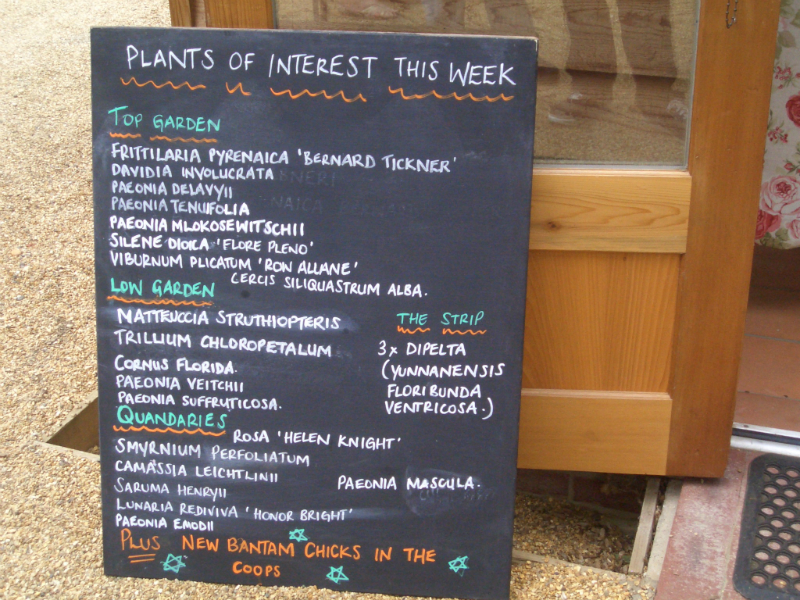 PLANTS OF INTEREST THIS WEEK
TOP GARDEN
FRITTILARIA PYRENAICA 'BERNARD TICKNER'
DAVIDIA INVOLUCRATA
PAEONIA DELAVYII
PAEONIA TENUIFOLIA
PAEONIA MLOKOSEWITSCHII
SILENE DIOICA 'FLORE PLENO'
VIBURNUM PLICATUM 'RON ALLANE'
CERCIS SILIQUASTRUM ALBA.
LOW GARDEN
MATTEUCCIA STRUTHIOPTERIS
TRILLIUM CHLOROPETALUM
CORNUS FLORIDA.
PAEONIA VEITCHII
PAEONIA SUFFRUTICOSA.
THE STRIP
3x DIPELTA
(YUNNANENSIS
FLORIBUNDA
VENTRICOSA.)
QUANDARIES
ROSA 'HELEN KNIGHT'
SMYRNIUM PERFOLIATUM
CAMASSIA LEICHTLINII
PAEONIA MASCULA.
SARUMA HENRYII
LUNARIA REDIVIVA 'HONOR BRIGHT'
PAEONIA EMODII
PLUS NEW BANTAM CHICKS IN THE
COOPS